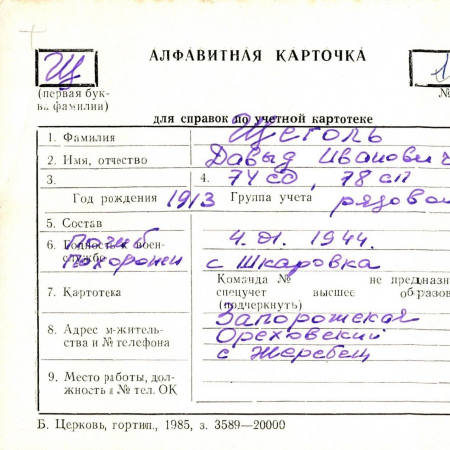 АЛФАВИТНАЯ КАРТОЧКА
Щ
(первая бук-
ва фамилии)
№
для справок по учетной картотеке
1. Фамилия Щеголь
2. Имя, отчество Давыд Иванович
3. 4. 74 сд, 78 сп
Год рождения 1913 Группа учета рядовой
5. Состав
6. Годность к воен- погиб 4.01.1944.
службе похоронен с Шкаровка
7. Картотека Команда № не предназн
спецучет высшее образов
(подчеркнуть)
Запорожская
8. Адрес м-житель- Ореховский
ства и № телефона с Жеребец
9. Место работы, дол-
жность и № тел. ОК
Б. Церковь, гортип., 1985, з. 3589—20000